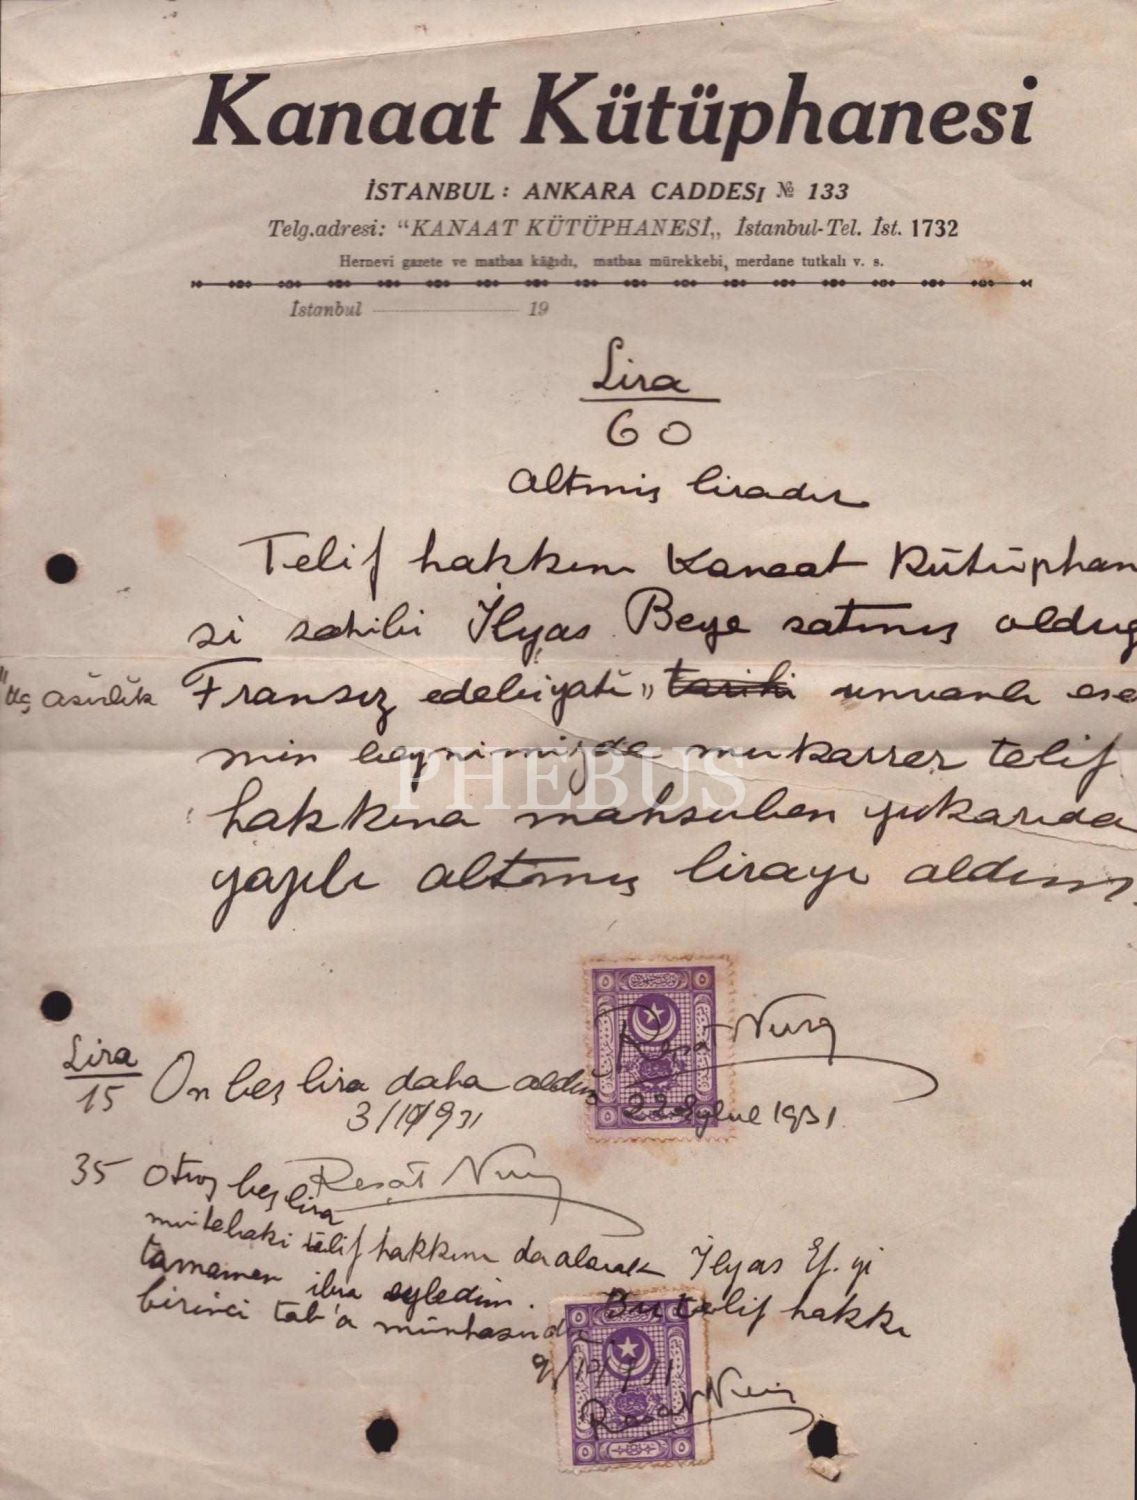 Kanaat Kütüphanesi
İSTANBUL : ANKARA CADDESI № 133
Telg.adresi: "KANAAT KÜTÜPHANESİ„ İstanbul-Tel. İst. 1732
Hernevi gazete ve matbaa kâğıdı, matbaa mürekkebi, merdane tutkalı v. s.
İstanbul 19
Lira
60
altmış liradır
Telif hakkını Kanaat Kütüphan
si sahibi İlyas Beye satmış oldug
"Üç asırlık Fransız edebiyatı„ tarihi unvanlı ese
min beynimizde mukarrer telif
hakkına mahsuben yukarıda
yazılı altmış lirayı aldım.
PHEBUS
Reşat Nuri
22 Eylul 1931
Lira
15 On beş lira daha aldım
3/10/931
Reşat Nuri
35 Otuz beş lira
mütebaki telif hakkını da alarak İlyas Ef. yi
tamamen ibra eyledim. Bu telif hakkı
birinci tab'a münhasırdır
9/10/931
Reşat Nuri